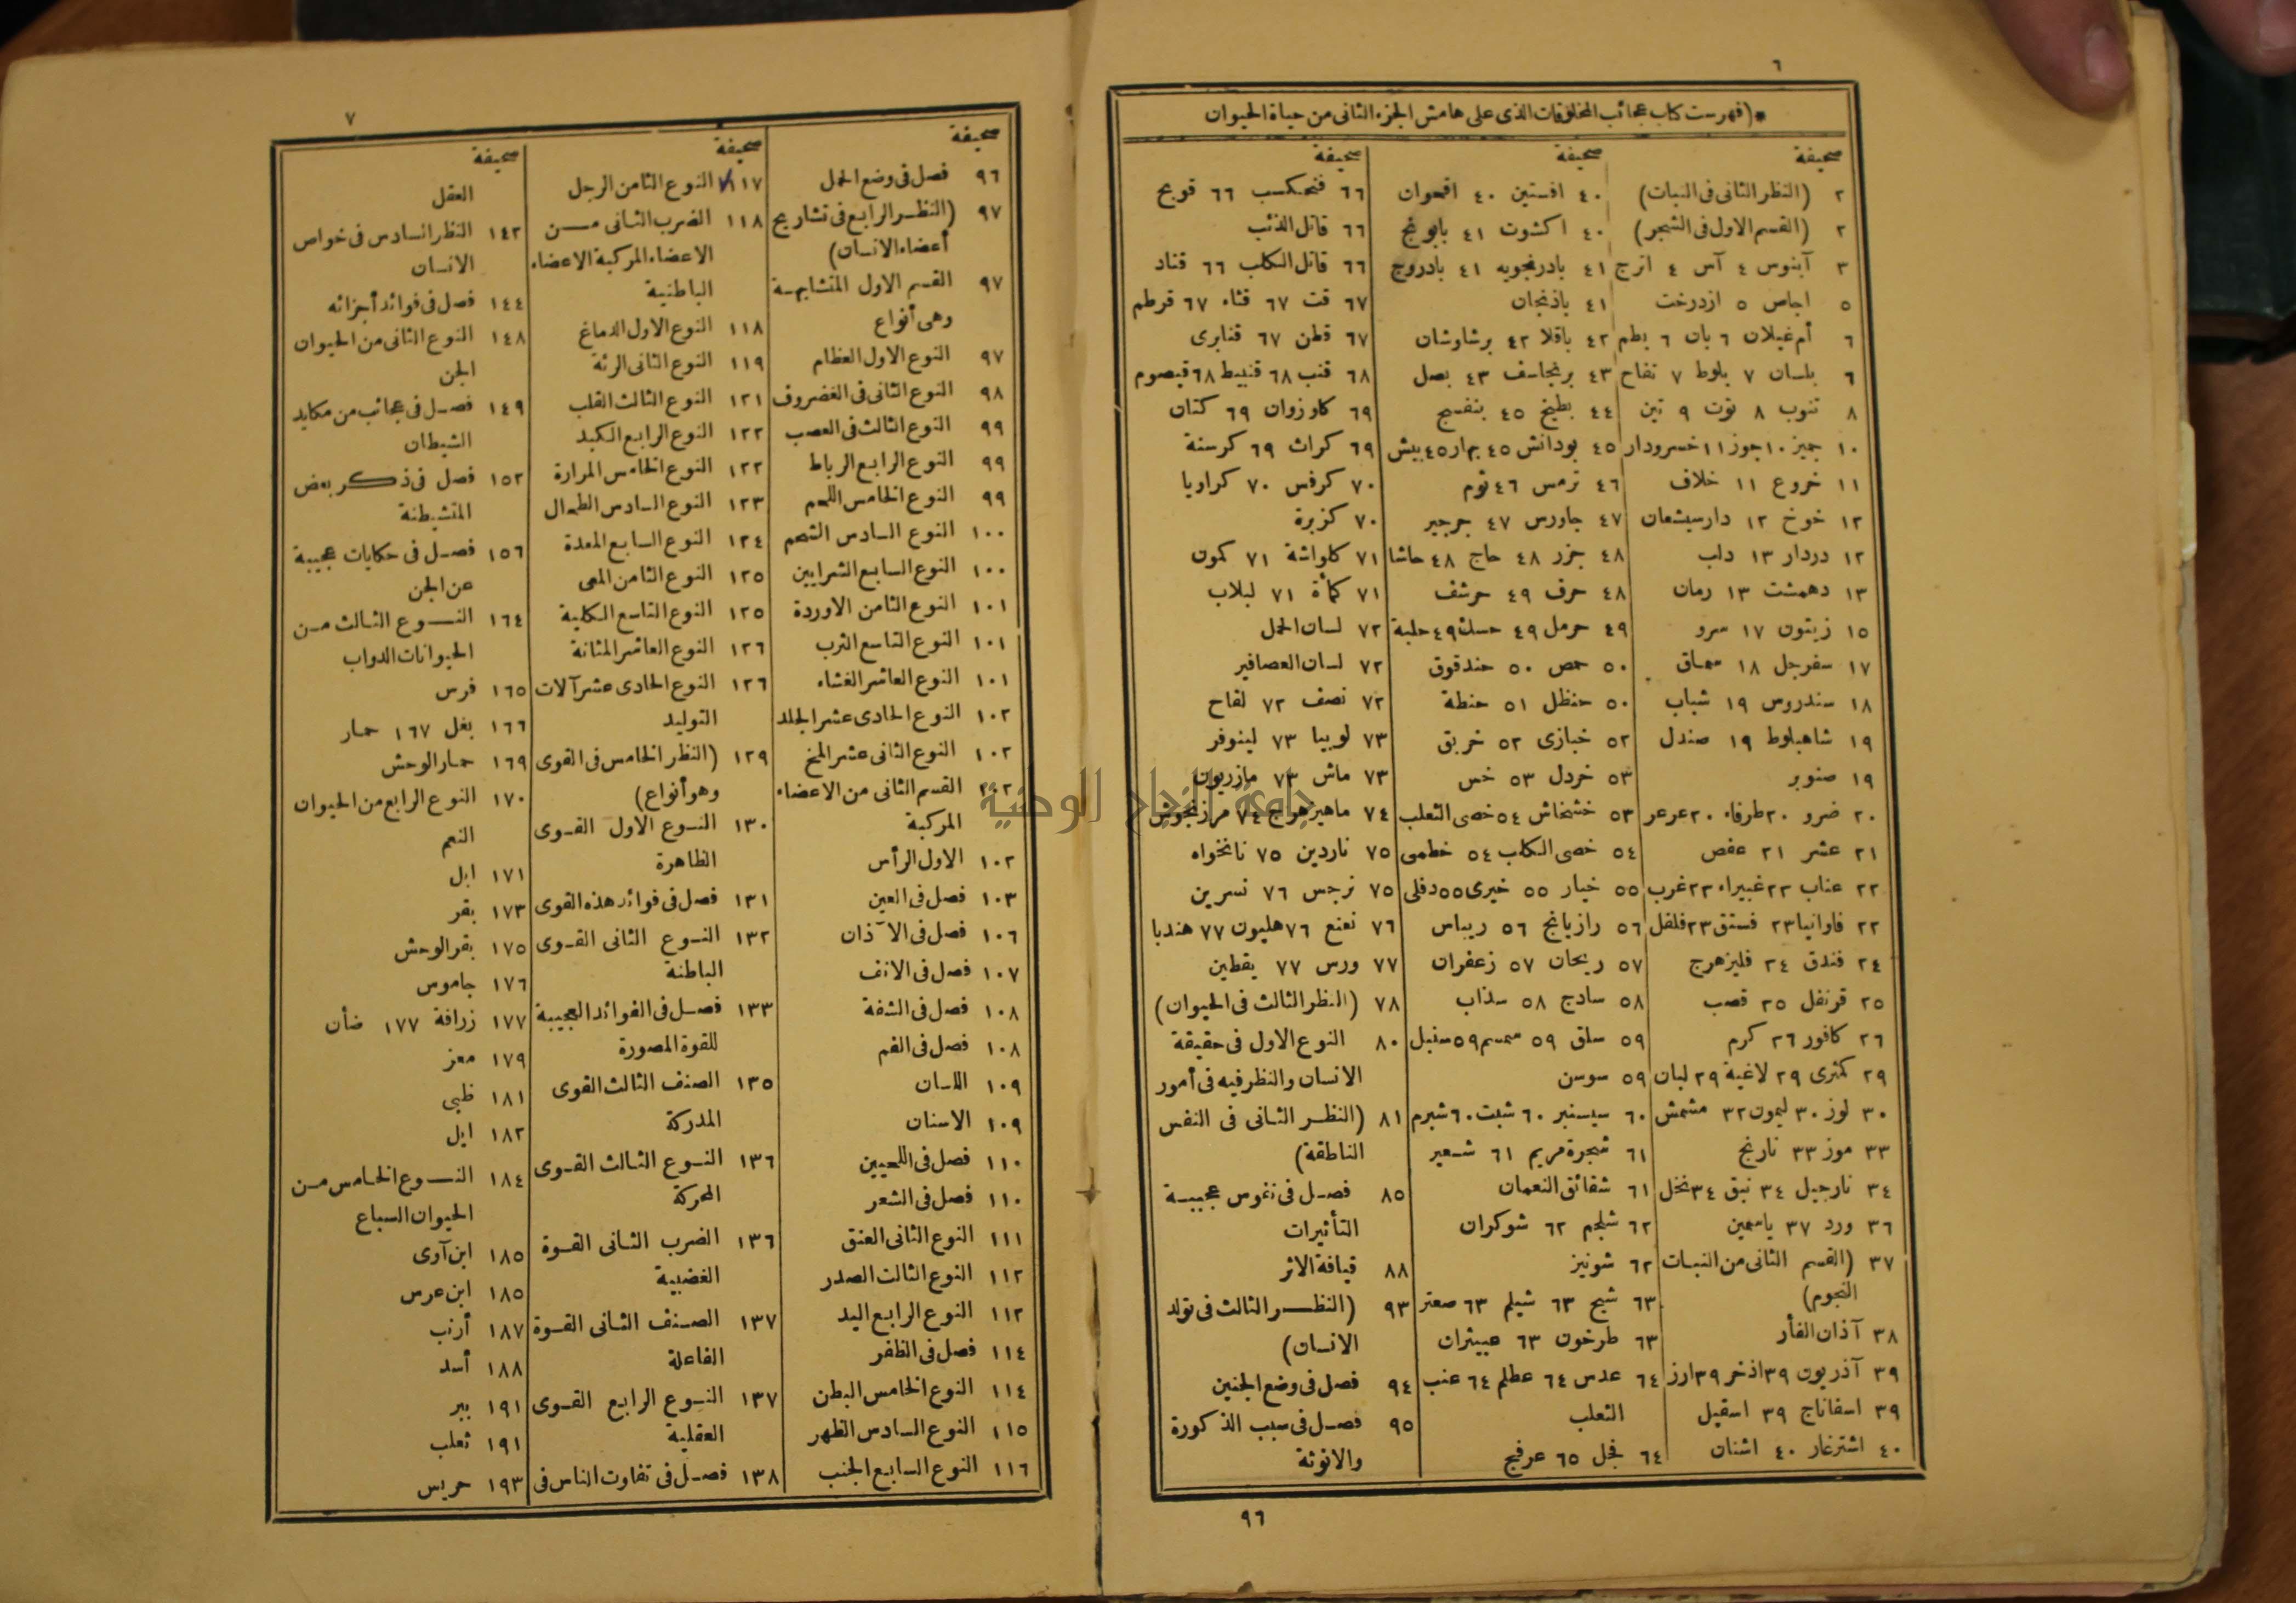 ٦
*(فهرست كتاب عجائب المخلوقات الذى على هامش الجزء الثانى من حياة الحيوان
صحيفة
٢ (النظر الثانى فى النبات)
٢ (القسم الاول فى الشجر)
٣ آبنوس ٤ آس ٤ اترج
٥ اجاص ٥ ازدرخت
٦ أم غيلان ٦ بان ٦ بطم
٦ بلسان ٧ بلوط ٧ تفاح
٨ تنوب ٨ توت ٩ تين
١٠ جميز ١٠ جوز ١١ خسرودار
١١ خروع ١١ خلاف
١٢ خوخ ١٢ دارسيشعان
١٢ دردار ١٣ دلب
١٣ دهمشت ١٣ رمان
١٥ زيتون ١٧ سرو
١٧ سفرجل ١٨ سماق
١٨ سندروس ١٩ شباب
١٩ شاهبلوط ١٩ صندل
١٩ صنوبر
٢٠ ضرو ٢٠ طرفاء ٢٠ عرعر
٢١ عشر ٢١ عفص
٢٢ عناب ٢٢ غبيراء ٢٢ غرب
٢٢ فاوانيا ٢٣ فستق ٢٣ فلفل
٢٤ فندق ٢٤ فليزهرج
٢٥ قرنفل ٢٥ قصب
٢٦ كافور ٢٦ كرم
٢٩ كمثرى ٢٩ لاغية ٢٩ لبان
٣٠ لوز ٣٠ ليمون ٣٢ مشمش
٣٣ موز ٣٣ نارنج
٣٤ نارجيل ٣٤ نبق ٣٤ نخل
٣٦ ورد ٣٧ ياسمين
٣٧ (القسم الثانى من النبات
النجوم)
٣٨ آذان الفأر
٣٩ آذريون ٣٩ اذخر ٣٩ ارز
٣٩ اسفاناج ٣٩ اسقيل
٤٠ اشترغار ٤٠ اشنان
صحيفة
٤٠ افسنتين ٤٠ اقحوان
٤٠ اكشوت ٤١ بابونج
٤١ بادرنجويه ٤١ بادروج
٤١ باذنجان
٤٢ باقلا ٤٢ برشاوشان
٤٣ برنجاسف ٤٣ بصل
٤٤ بطيخ ٤٥ بنفسج
٤٥ بودانش ٤٥ بهار ٤٥ بيش
٤٦ ترمس ٤٦ ثوم
٤٧ جاورس ٤٧ جرجير
٤٨ جزر ٤٨ حاج ٤٨ حاشا
٤٨ حرف ٤٩ حرشف
٤٩ حرمل ٤٩ حسك ٤٩ حلبة
٥٠ حمص ٥٠ حندقوق
٥٠ حنظل ٥١ حنطة
٥٢ خبازى ٥٢ خربق
٥٣ خردل ٥٣ خس
٥٣ خشخاش ٥٤ خصى الثعلب
٥٤ خصى الكلب ٥٤ خطمى
٥٥ خيار ٥٥ خيرى ٥٥ دفلى
٥٦ رازيانج ٥٦ ريباس
٥٧ ريحان ٥٧ زعفران
٥٨ سادج ٥٨ سذاب
٥٩ سلق ٥٩ سمسم ٥٩ سنبل
٥٩ سوسن
٦٠ سيسنبر ٦٠ شبت ٦٠ شبرم
٦١ شجرة مريم ٦١ شعير
٦١ شقائق النعمان
٦٢ شلجم ٦٢ شوكران
٦٢ شونيز
٦٣ شيح ٦٣ شيلم ٦٣ صعتر
٦٣ طرخون ٦٣ عبيثران
٦٤ عدس ٦٤ عظلم ٦٤ عنب
الثعلب
٦٤ فجل ٦٥ عرفج
صحيفة
٦٦ فنجكست ٦٦ فوتنج
٦٦ قاتل الذئب
٦٦ قاتل الكلب ٦٦ قتاد
٦٧ قت ٦٧ قثاء ٦٧ قرطم
٦٧ قطن ٦٧ قنابرى
٦٨ قنب ٦٨ قنبيط ٦٨ قيصوم
٦٩ كاوزوان ٦٩ كتان
٦٩ كراث ٦٩ كرسنة
٧٠ كرفس ٧٠ كراويا
٧٠ كزبرة
٧١ كلواشة ٧١ كمون
٧١ كمأة ٧١ لبلاب
٧٢ لسان الحمل
٧٢ لسان العصافير
٧٢ نصف ٧٢ لفاح
٧٣ لوبيا ٧٣ لينوفر
٧٣ ماش ٧٣ مازريون
٧٤ ماهيزهراج ٧٤ مرزنجوش
٧٥ ناردين ٧٥ نانخواه
٧٥ نرجس ٧٦ نسرين
٧٦ نعنع ٧٦ هليون ٧٧ هندبا
٧٧ ورس ٧٧ يقطين
٧٨ (النظر الثالث فى الحيوان)
٨٠ النوع الاول فى حقيقة
الانسان والنظر فيه فى أمور
٨١ (النظر الثانى فى النفس
الناطقة)
٨٥ فصل فى نفوس عجيبة
التأثيرات
٨٨ قيافة الاثر
٩٣ (النظر الثالث فى تولد
الانسان)
٩٤ فصل فى وضع الجنين
٩٥ فصل فى سبب الذكورة
والانوثة
٩٦
٧
صحيفة
٩٦ فصل فى وضع الحمل
٩٧ (النظر الرابع فى تشاريح
أعضاء الانسان)
٩٧ القسم الاول المتشابهة
وهى أنواع
٩٧ النوع الاول العظام
٩٨ النوع الثانى فى الغضروف
٩٩ النوع الثالث فى العصب
٩٩ النوع الرابع الرباط
٩٩ النوع الخامس اللحم
١٠٠ النوع السادس الشحم
١٠٠ النوع السابع الشرايين
١٠١ النوع الثامن الاوردة
١٠١ النوع التاسع الثرب
١٠١ النوع العاشر الغشاء
١٠٢ النوع الحادى عشر الجلد
١٠٢ النوع الثانى عشر المخ
١٠٢ القسم الثانى من الاعضاء
المركبة
١٠٢ الاول الرأس
١٠٣ فصل فى العين
١٠٦ فصل فى الآذان
١٠٧ فصل فى الانف
١٠٨ فصل فى الشفة
١٠٨ فصل فى الفم
١٠٩ اللسان
١٠٩ الاسنان
١١٠ فصل فى اللحيين
١١٠ فصل فى الشعر
١١١ النوع الثانى العنق
١١٢ النوع الثالث الصدر
١١٢ النوع الرابع اليد
١١٤ فصل فى الظفر
١١٤ النوع الخامس البطن
١١٥ النوع السادس الظهر
١١٦ النوع السابع الجنب
صحيفة
١١٧ النوع الثامن الرجل
١١٨ الضرب الثانى من
الاعضاء المركبة الاعضاء
الباطنية
١١٨ النوع الاول الدماغ
١١٩ النوع الثانى الرئة
١٢١ النوع الثالث القلب
١٢٢ النوع الرابع الكبد
١٢٢ النوع الخامس المرارة
١٢٣ النوع السادس الطحال
١٢٤ النوع السابع المعدة
١٢٥ النوع الثامن المعى
١٢٥ النوع التاسع الكلية
١٢٦ النوع العاشر المثانة
١٢٦ النوع الحادى عشر آلات
التوليد
١٢٩ (النظر الخامس فى القوى
وهو أنواع)
١٣٠ النوع الاول القوى
الظاهرة
١٣١ فصل فى فوائد هذه القوى
١٣٢ النوع الثانى القوى
الباطنة
١٣٣ فصل فى الفوائد العجيبة
للقوة المصورة
١٣٥ الصنف الثالث القوى
المدركة
١٣٦ النوع الثالث القوى
المحركة
١٣٦ الضرب الثانى القوة
الغضبية
١٣٧ الصنف الثانى القوة
الفاعلة
١٣٧ النوع الرابع القوى
العقلية
١٣٨ فصل فى تفاوت الناس فى
صحيفة
العقل
١٤٢ النظر السادس فى خواص
الانسان
١٤٤ فصل فى فوائد أجزائه
١٤٨ النوع الثانى من الحيوان
الجن
١٤٩ فصل فى عجائب من مكايد
الشيطان
١٥٢ فصل فى ذكر بعض
المتشيطنة
١٥٦ فصل فى حكايات عجيبة
عن الجن
١٦٤ النوع الثالث من
الحيوانات الدواب
١٦٥ فرس
١٦٦ بغل ١٦٧ حمار
١٦٩ حمار الوحش
١٧٠ النوع الرابع من الحيوان
النعم
١٧١ ابل
١٧٣ بقر
١٧٥ بقر الوحش
١٧٦ جاموس
١٧٧ زرافة ١٧٧ ضأن
١٧٩ معز
١٨١ ظبى
١٨٢ ايل
١٨٤ النوع الخامس من
الحيوان السباع
١٨٥ ابن آوى
١٨٥ ابن عرس
١٨٧ أرنب
١٨٨ أسد
١٩١ ببر
١٩١ ثعلب
١٩٣ حريس
جامعة النجاح الوطنية